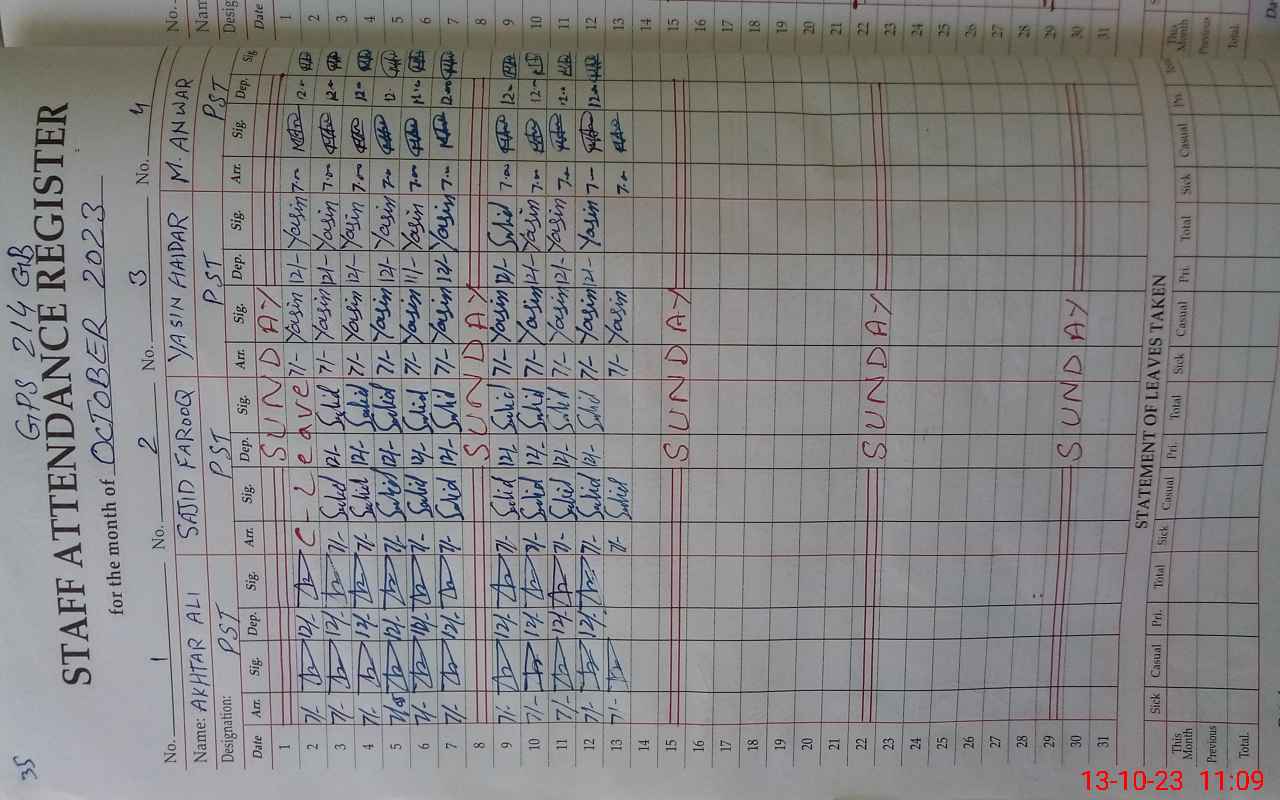 35
GPS 214 GB
STAFF ATTENDANCE REGISTER
for the month of OCTOBER 2023
No. 1 No. 2 No. 3 No. 4
Name: AKHTAR ALI SAJID FAROOQ YASIN HAIDAR M. ANWAR
Designation: PST PST PST PST
Date Arr. Sig. Dep. Sig. Arr. Sig. Dep. Sig. Arr. Sig. Dep. Sig. Arr. Sig. Dep. Sig.
1 SUNDAY
2 7/- 12/- C-Leave 7/- Yasin 12/- Yasin 7.00 12.00
3 7/- 12/- 7/- Sajid 12/- Sajid 7/- Yasin 12/- Yasin 7.00 12.00
4 7/- 12/- 7/- Sajid 12/- Sajid 7/- Yasin 12/- Yasin 7.00 12.00
5 7/- 12/- 7/- Sajid 12/- Sajid 7/- Yasin 12/- Yasin 7.00 12.
6 7/- 12/- 7/- Sajid 12/- Sajid 7/- Yasin 11/- Yasin 7.00 12.00
7 7/- 12/- 7/- Sajid 12/- Sajid 7/- Yasin 12/- Yasin 7.00 12.00
8 SUNDAY
9 7/- 12/- 7/- Sajid 12/- Sajid 7/- Yasin 12/- Sajid 7.00 12.00
10 7/- 12/- 7/- Sajid 12/- Sajid 7/- Yasin 12/- Yasin 7.00 12.00
11 7/- 12/- 7/- Sajid 12/- Sajid 7/- Yasin 12/- Yasin 7.00 12.00
12 7/- 12/- 7/- Sajid 12/- Sajid 7/- Yasin 12/- Yasin 7.00 12.00
13 7/- 7/- Sajid 7/- Yasin 7.00
14
15 SUNDAY
16
17
18
19
20
21
22 SUNDAY
23
24
25
26
27
28
29 SUNDAY
30
31
STATEMENT OF LEAVES TAKEN
Sick Casual Pri. Total Sick Casual Pri. Total Sick Casual Pri. Total Sick Casual Pri.
This Month
Previous
Total.
No.
Designation
Date
1
2
3
4
5
6
7
8
9
10
11
12
13
14
15
16
17
18
19
20
21
22
23
24
25
26
27
28
29
30
31
This Month
Previous
Total.
13-10-23 11:09